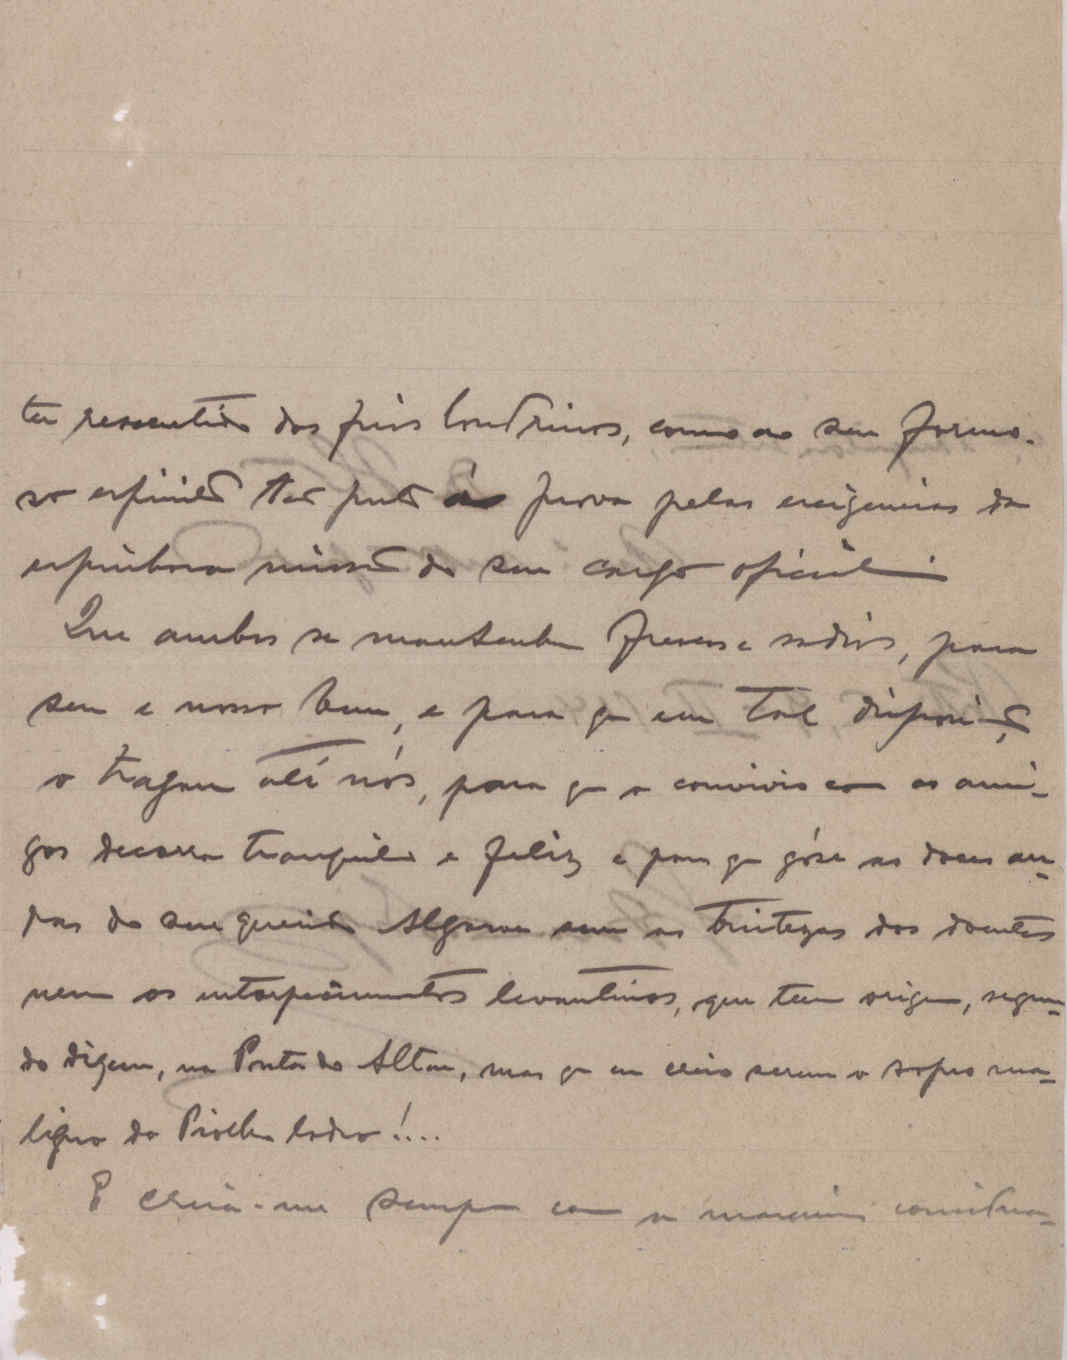 ter ressentido dos frios londrinos, como ao seu formo-
so espirito ter posto á prova pelas exigencias da
espinhosa missão do seu cargo oficial.
Que ambos se mantenham frescos e sadios, para
seu e nosso bem, e para que em tal disposição
o tragam até nós, para que o convivio com os ami-
gos decorra tranquilo e feliz e para que góse as doces
do seu querido Algarve sem as tristezas dos doentes
nem os entorpecimentos levantinos, que teem origem, segun-
do dizem, na Ponta do Altar, mas que eu creio serem o sopro ma-
ligno do ladro!...
E creia-me sempre com a maxima considera-